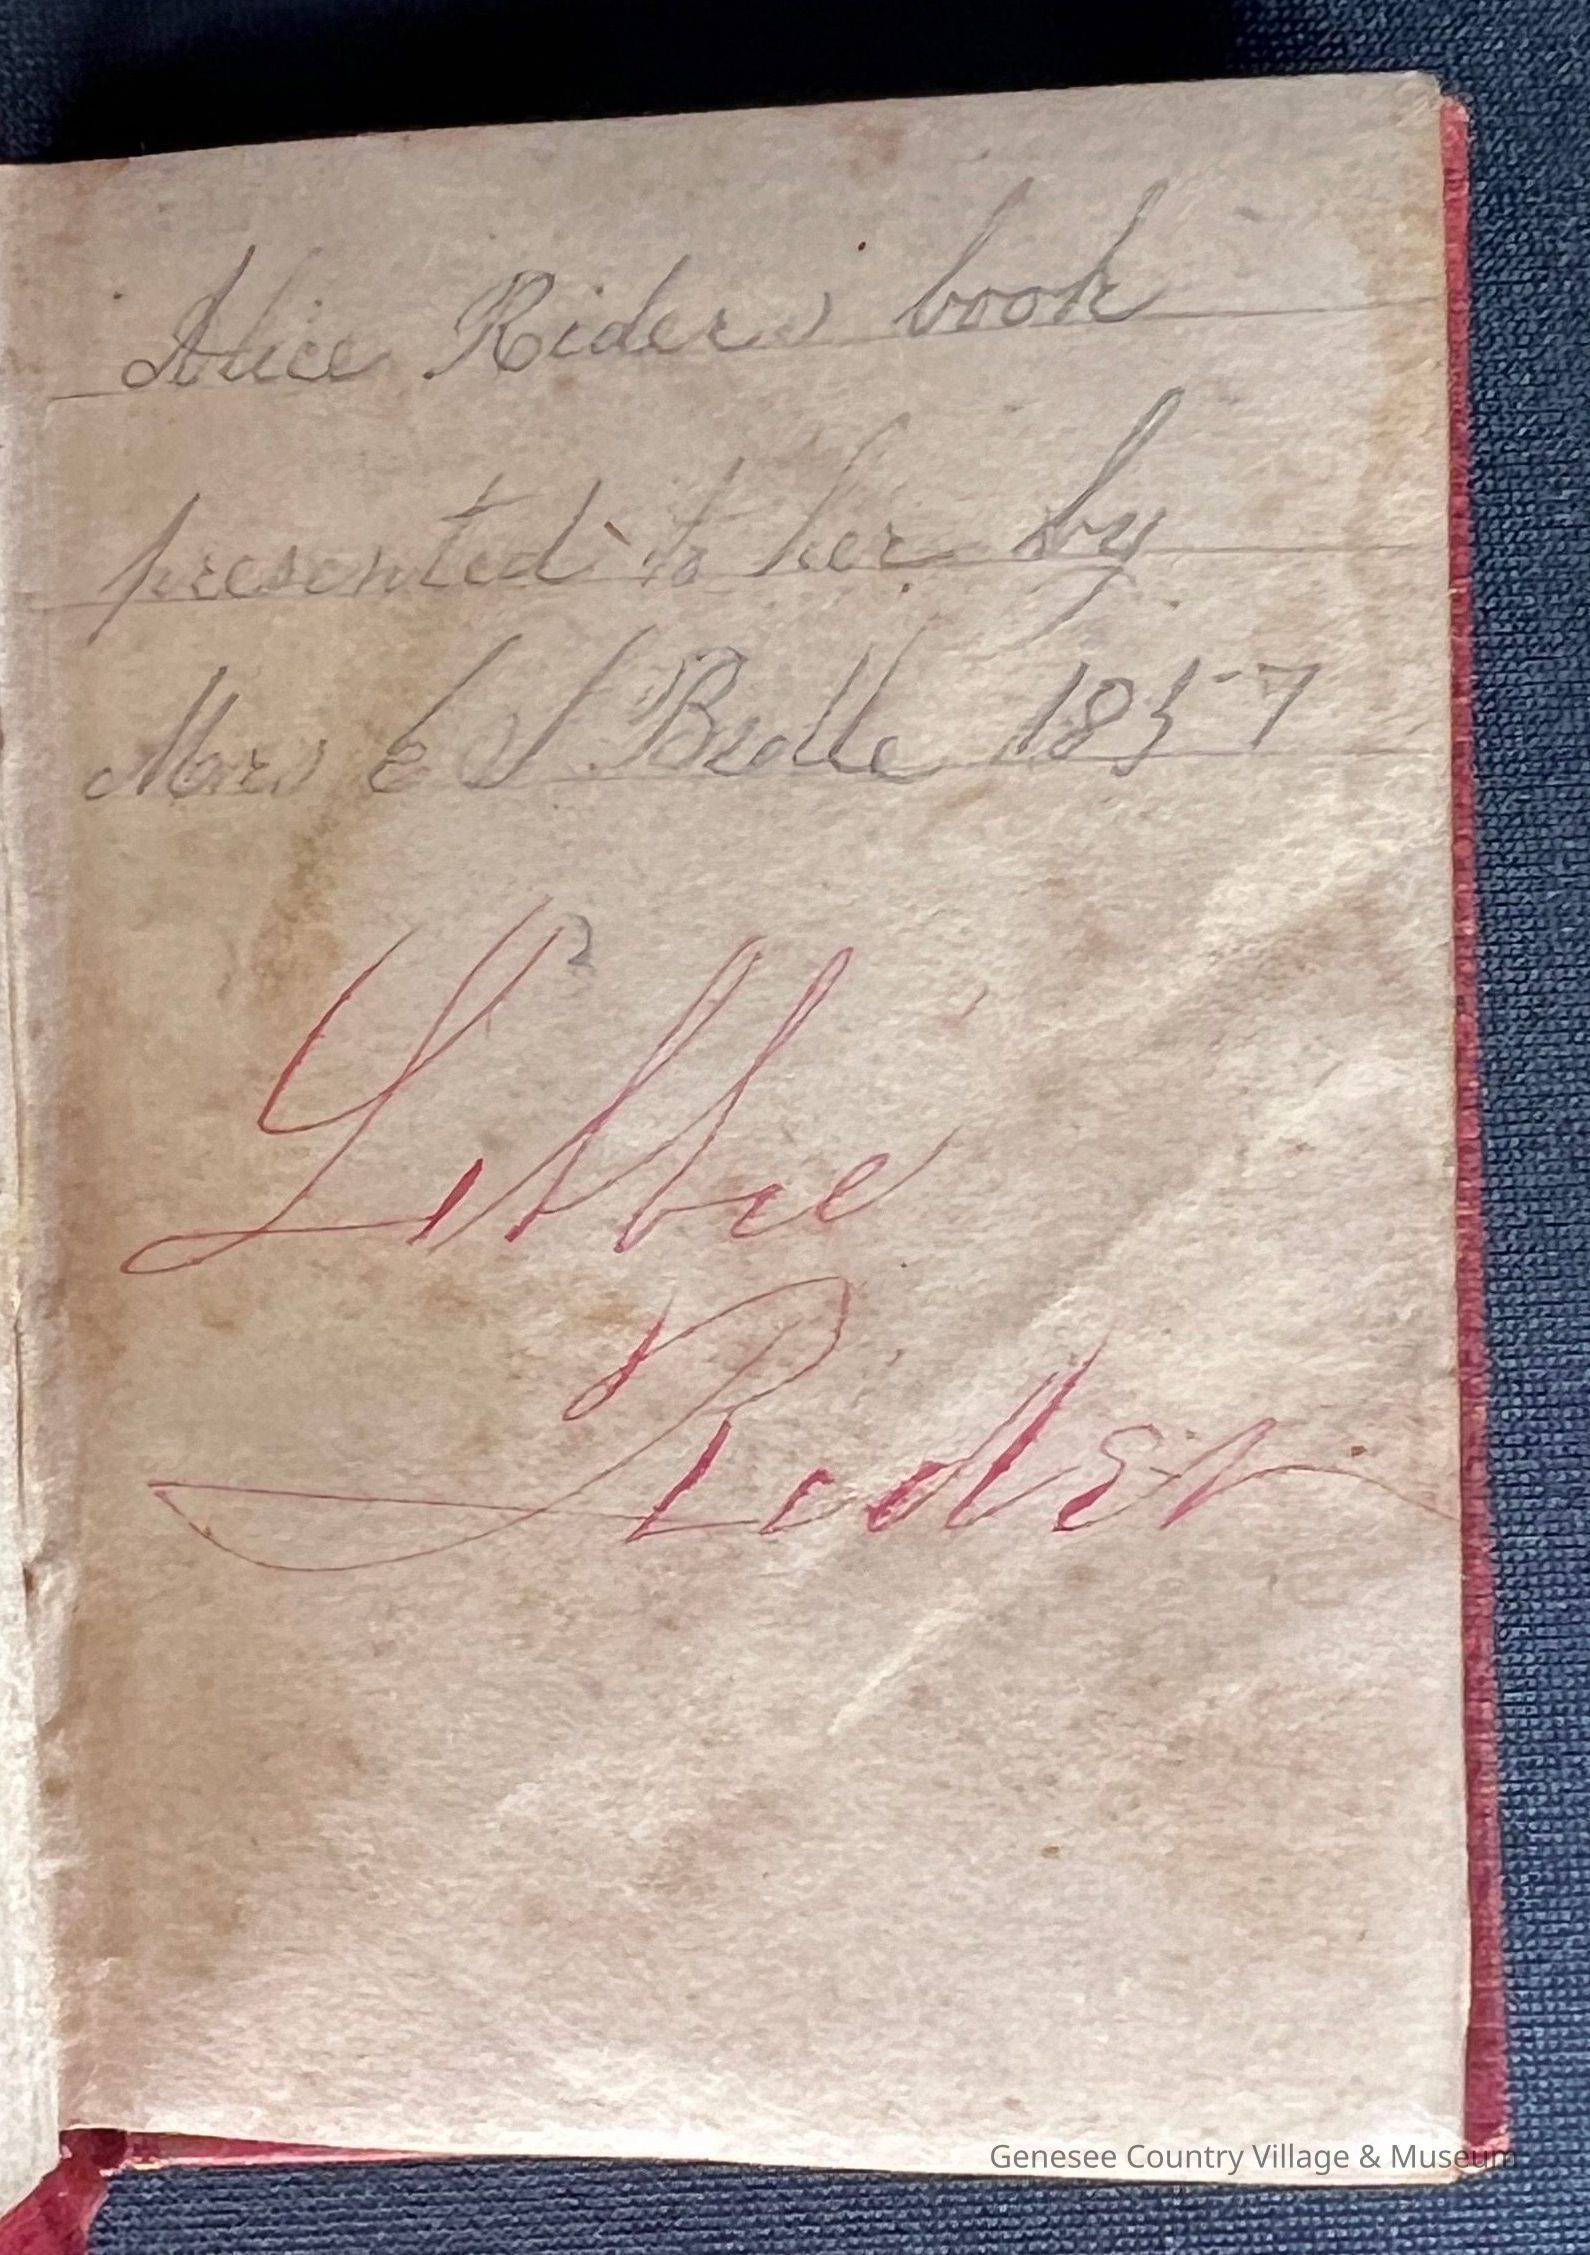 Alice Riders book
presented to her by
Mrs E S Bedlle 1857
Libbie
Rider
Genesee Country Village & Museum